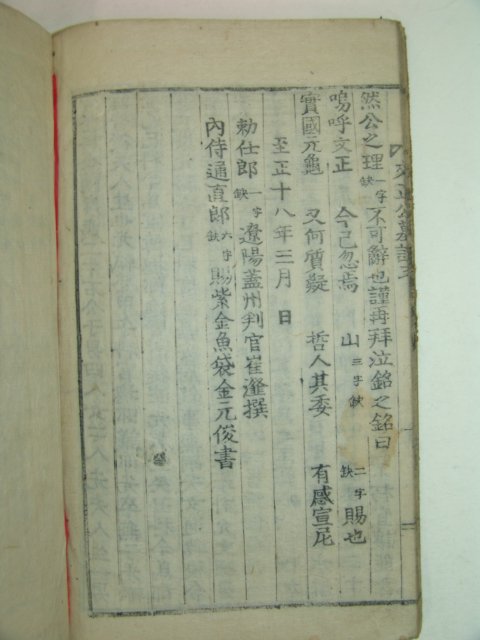 然公之理一字缺不可辭也謹再拜泣銘之銘曰
嗚呼文正 今已忽焉 山三字缺 二字缺賜也
實國元龜 又何質疑 哲人其委 有感宣尼
至正十八年三月 日
勅仕郎一字缺遼陽蓋州判官崔瀣撰
內侍通直郎六字缺賜紫金魚袋金元俊書